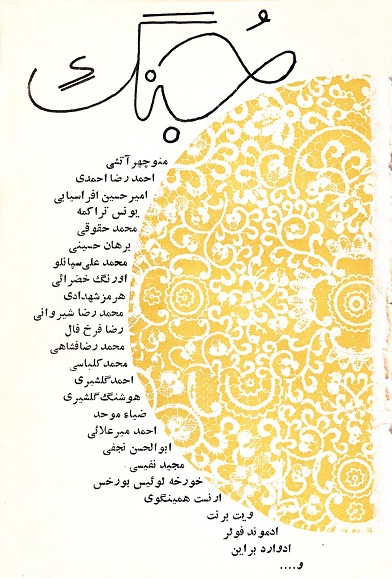 جُنگ
منوچهر آتشی
احمد رضا احمدی
امیر حسین افراسیابی
یونس تراکمه
محمد حقوقی
برهان حسینی
محمد علی سپانلو
اورنگ خضرائی
هرمز شهدادی
محمد رضا شیروانی
رضا فرخ فال
محمد رضا فشاهی
محمد کلباسی
احمد گلشیری
هوشنگ گلشیری
ضیاء موحد
احمد میر علائی
ابوالحسن نجفی
مجید نفیسی
خورخه لوئیس بورخس
ارنست همینگوی
ویت برنت
ادموند فولر
ادوارد براین
و....